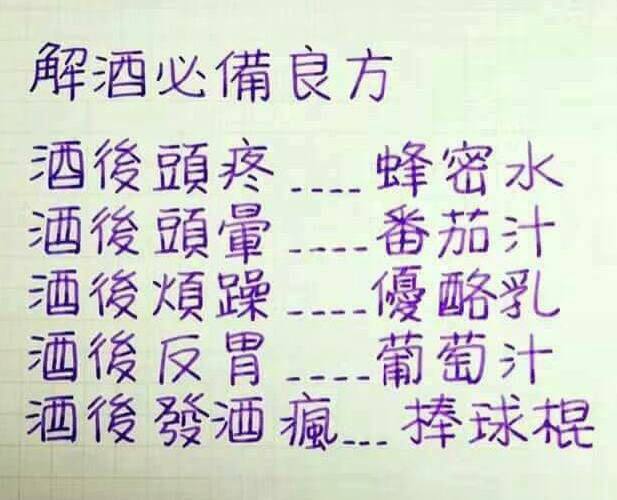 解酒必備良方
酒後頭疼----蜂密水
酒後頭暈----番茄汁
酒後煩躁----優酪乳
酒後反胃----葡萄汁
酒後發酒瘋---捧球棍